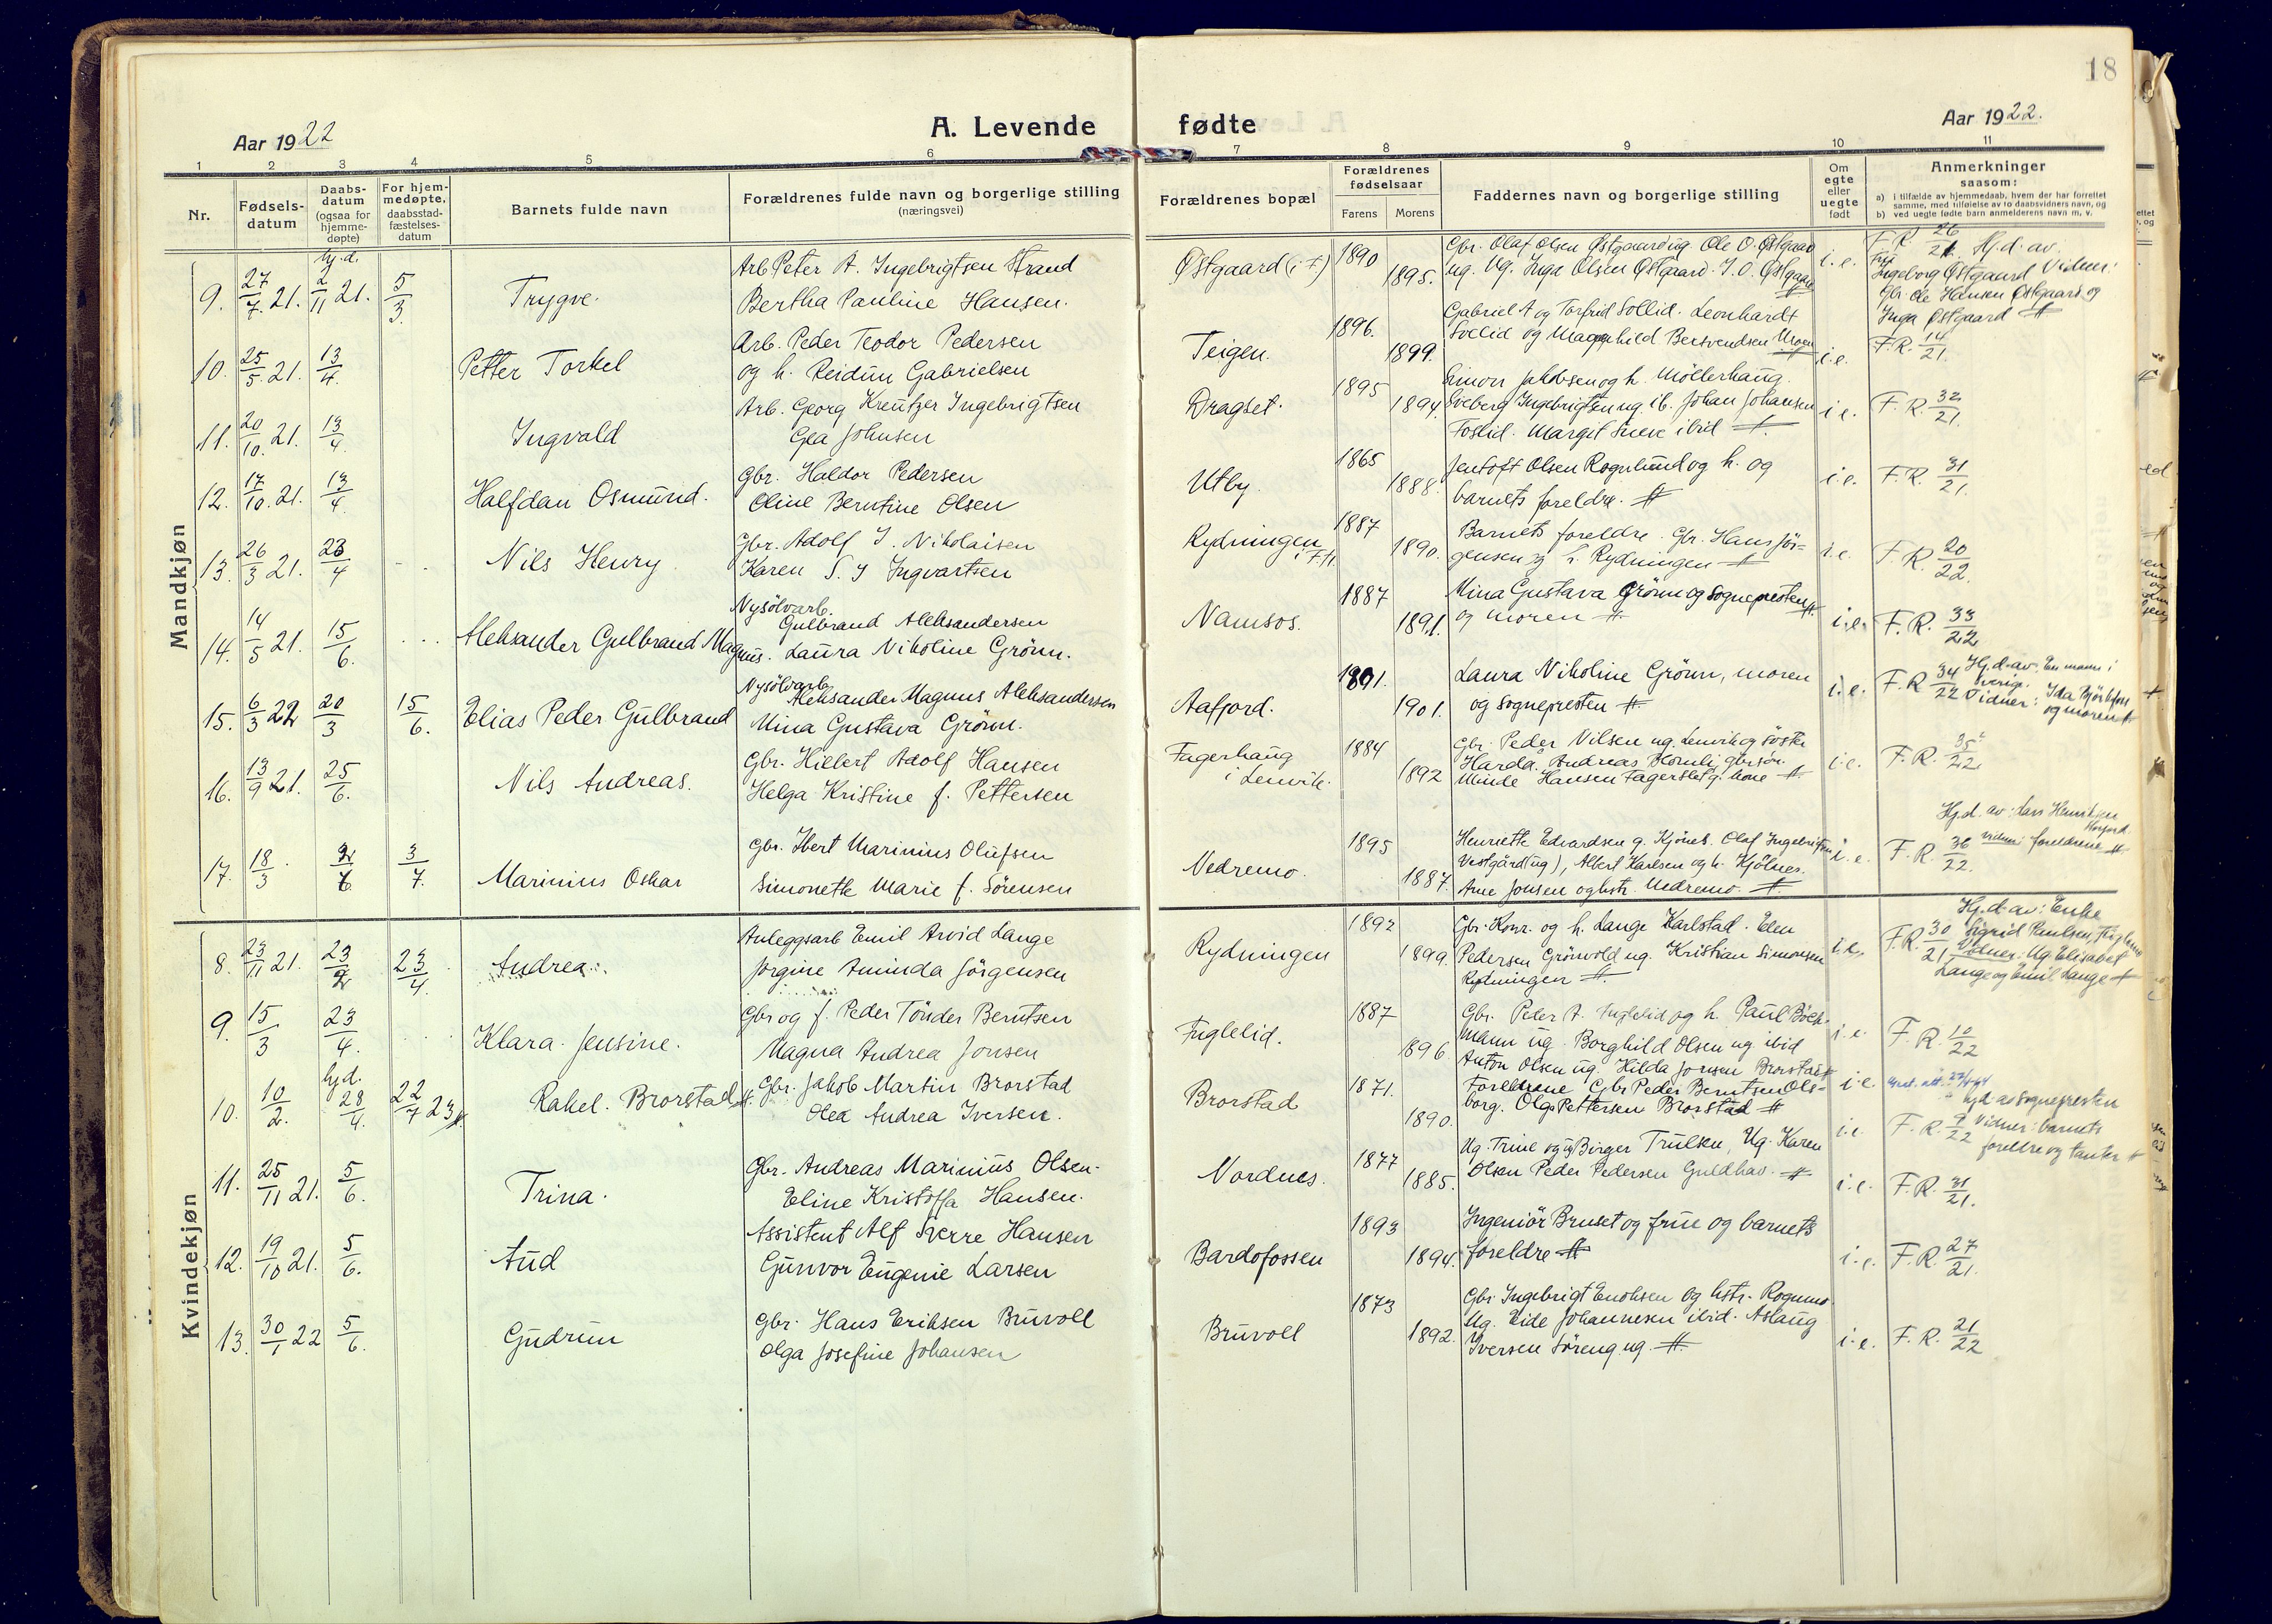 18
Aar 1922
A. Levende fødte
Aar 1922.
1 2 3 4 5 6 7 8 9 10 11
Nr.
Fødsels-
datum
Daabs-
datum
(ogsaa for
hjemme-
døpte)
For hjem-
medøpte,
daabsstad-
fæstelses-
datum
Barnets fulde navn
Forældrenes fulde navn og borgerlige stilling
(næringsvei)
Forældrenes bopæl
Forældrenes
fødselsaar
Farens Morens
Faddernes navn og borgerlige stilling
Om
egte
eller
uegte
født
Anmerkninger
saasom:
a) i tilfælde av hjemmedaab, hvem der har forrettet
samme, med tilføielse av to daabsvidners navn, og
b) ved uegte fødte barn anmelderens navn m. v.
Mandkjøn
9. 27/7 21. hj.d. 2/11 21. 5/3. Trygve.
Arb Peter A. Ingebrigtsen Strand
Bertha Pauline Hansen.
Østgaard (i F.) 1890 1895.
Gbr. Olaf Olsen Østgaard ug. Ole O. Østgaard
ug. Ug. Inga Olsen Østgaard. J. O. Østgaard
i.e. F.R. 26/21. Hj.d. av
Ingeborg Østgaard Vidner:
Gbr. Ole Hansen Østgaard og
Inga Østgaard
10. 25/5. 21. 13/4. Petter Torkel
Arb. Peder Teodor Pedersen
og h. Reidun Gabrielsen
Teigen. 1896. 1899.
Gabriel A og Torfrid Sollid. Leonhardt
Sollid og Magnhild Bersvendsen Moen
i.e. F.R. 14/21.
11. 20/10. 21. 13/4. Ingvald
Arb. Georg Kreutzer Ingebrigtsen
Gea Johnsen
Dragset. 1895 1894.
Simon Jakobsen og h. Møllerhaug.
Sveberg Ingebrigtsen ug. ib. Johan Johansen
Foslid. Margit Sneve ibid
i.e. F.R. 32/21.
12. 17/10. 21. 13/4. Halfdan Osmund.
Gbr. Haldor Pedersen
Oline Berntine Olsen
Utby. 1865 1888.
Jentoft Olsen Rognlund og h. og
barnets foreldre.
i.e. F.R. 31/21.
13. 26/3 21. 23/4 Nils Henry
Gbr. Adolf J. Nikolaisen
Karen S. J Ingvartsen
Rydningen i F.H. 1887 1890.
Barnets foreldre. Gbr. Hans Jör-
gensen og h. Rydningen
i.e. F.R. 20/22.
14. 14/5 21. 15/6. Aleksander Gulbrand Magnus.
Nysölvarb.
Gulbrand Aleksandersen
Laura Nikoline Grönn.
Namsos. 1887 1891.
Mina Gustava Grönn og sognepresten
og moren
i.e. F.R. 33/22
15. 6/3 22 20/3 15/6. Elias Peder Gulbrand
Nysölvarb
Aleksander Magnus Aleksandersen
Mina Gustava Grönn.
Aafjord. 1891. 1901.
Laura Nikoline Grönn, moren
og sognepresten
i.e. F.R 34/22 Hj.d. av. En mann i
Sverige.
Vidner: Ida
og moren
16. 13/9 21. 25/6. Nils Andreas.
Gbr. Hillert Adolf Hansen
Helga Kristine f. Pettersen
Fagerhaug
i Lenvik. 1884 1892
Gbr. Peder Nilsen ug. Lenvik og söster
Harda. Andreas Kornli gbrsön.
Minde Hansen Fagerslet g. kone
i.e. F.R. 35/22.
17. 18/3. 2/6. 3/7. Marinius Oskar
Gbr. Hert Marinius Olufsen
Simonette Marie f. Sörensen
Nedremo. 1895 1887.
Henriette Edvardsen g. Kjönes. Olaf Ingebrigtsen
Vestgård (ug), Albert Karlsen og h. Kjölnes.
Arne Jonsen og hstr. Nedremo.
i.e. F.R. 36/22. Hj.d. av: Lars Henriksen
Vidner: foreldrene
Kvindekjøn
8. 23/11 21. 23/2 23/4. Andrea.
Anleggsarb Emil Arvid Lange
Jorgine Aminda Jörgensen
Rydningen 1892 1899.
Gbr. Konr. og h. Lange Karlstad. Elen
Pedersen Grönvold ug. Kristian Simonsen
Rydningen
i.e. F.R. 30/21 Hj.d. av: Enke
Sigrid Paulsen,
Vidner: Ug. Elisabet
Lange og Emil Lange
9. 15/3 23/4. Klara. Jensine.
Gbr og f. Peder Tönder Berntsen
Magna Andrea Jonsen
Fuglelid. 1887 1896.
Gbr. Peder A. Fuglelid og h. Paul Böch-
mann ug. Borghild Olsen ug. ibid
Anton Olsen ug. Hilda Jonsen Brorstad
i.e. F.R. 10/22
10. 10/2. hj.d. 28/4. 22/7 23 Rakel. Brorstad
Gbr. Jakob Martin Brorstad
Olea Andrea Iversen.
Brorstad 1871. 1890.
Foreldrene Gbr Peder Berntsen Ols-
borg. Olga Pettersen Brorstad
i.e. hj.d. av sognepresten
i.e. F.R. 9/22 Vidner: barnets
foreldre og tanter
11. 25/11 21. 5/6. Trina.
Gbr. Andreas Marinius Olsen.
Eline Kristoffa Hansen.
Nordnes. 1877 1885.
Ug. Trine og ug Birger Trulsen, Ug. Karen
Olsen Peder Pedersen Guldhav.
i.e. F.R. 31/21.
12. 19/10 21. 5/6. Aud
Assistent Alf Sverre Hansen
Gunvor Eugenie Larsen
Bardofossen 1893 1894.
Ingeniör Bruset og frue og barnets
foreldre
i.e. F.R. 27/21.
13. 30/1 22 5/6. Gudrun
Gbr. Hans Eriksen Bruvoll
Olga Josefine Johansen
Bruvoll 1873 1892.
Gbr Ingebrigt Enoksen og hstr. Rognmo
Ug. Eide Johannesen ibid. Aslaug
Iversen Söreng ug.
i.e. F.R. 21/22